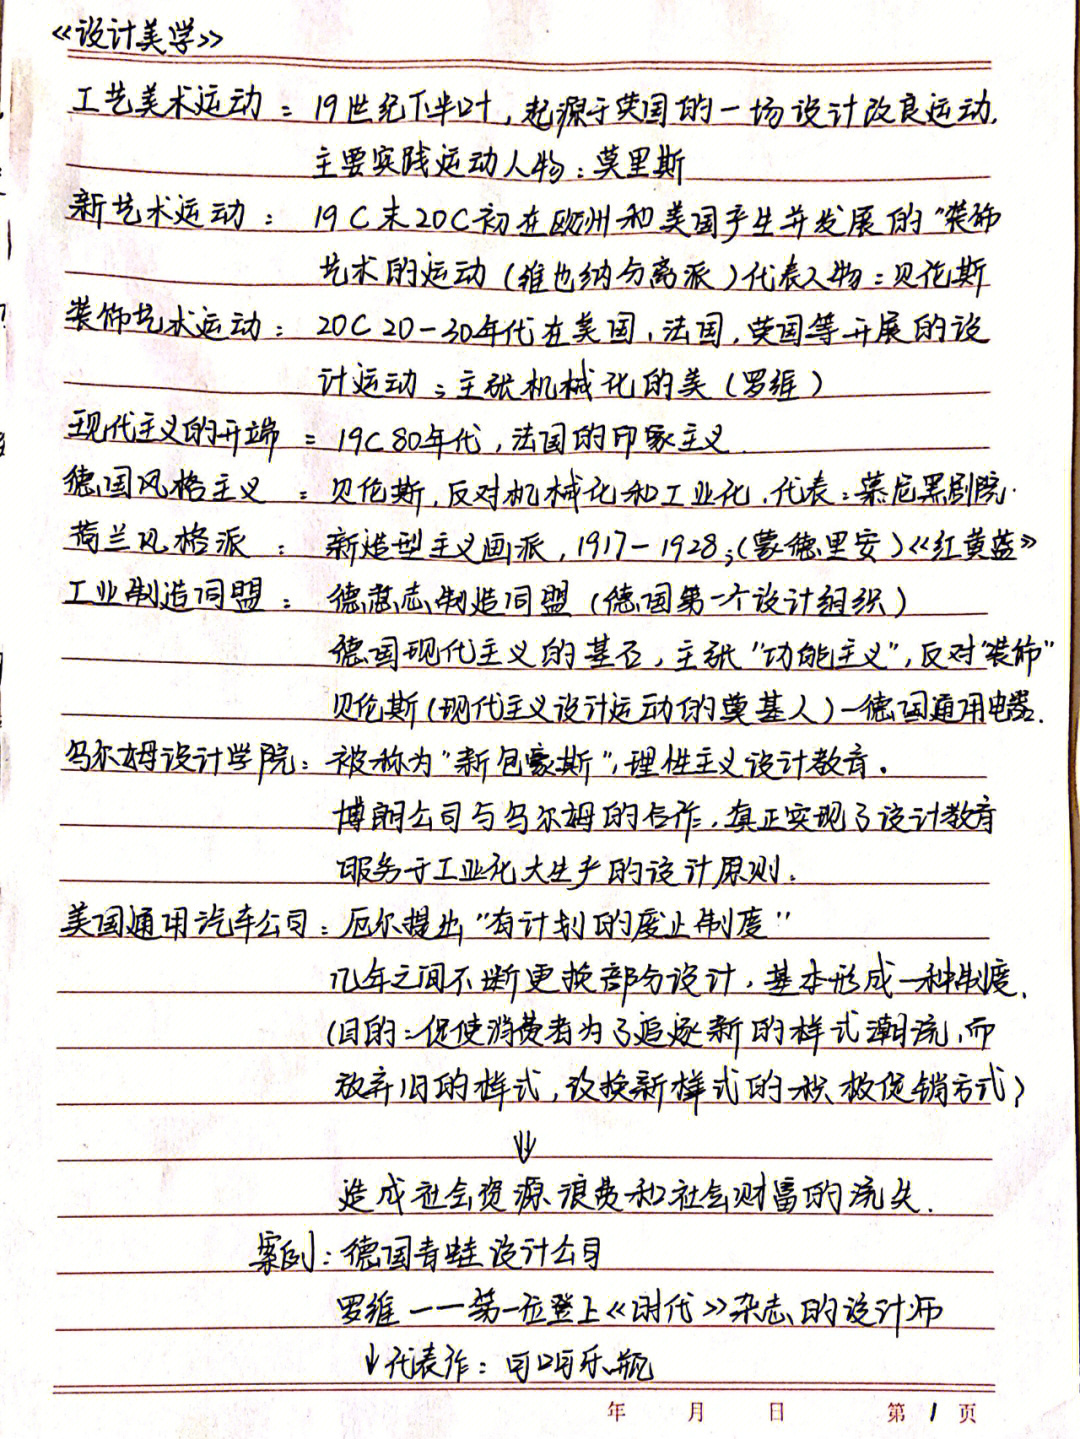 《设计美学》
工艺美术运动：19世纪下半叶，起源于英国的一场设计改良运动.
主要实践运动人物：莫里斯
新艺术运动：19C末20C初在欧洲和美国产生并发展的"装饰
艺术的运动（维也纳分离派）代表人物：贝伦斯
装饰艺术运动：20C20-30年代在美国，法国，英国等开展的设
计运动；主张机械化的美（罗维）
现代主义的开端：19C80年代，法国的印象主义.
德国风格主义：贝伦斯，反对机械化和工业化.代表：慕尼黑剧院.
荷兰风格派：新造型主义画派，1917-1928；(蒙德里安)《红黄蓝》
工业制造同盟：德意志制造同盟（德国第一个设计组织）
德国现代主义的基石，主张"功能主义"，反对"装饰"
贝伦斯(现代主义设计运动的奠基人)—德国通用电器.
乌尔姆设计学院：被称为"新包豪斯"，理性主义设计教育.
博朗公司与乌尔姆的合作，真正实现了设计教育
服务于工业化大生产的设计原则.
美国通用汽车公司：厄尔提出"有计划的废止制度"
几年之间不断更换部分设计，基本形成一种制度.
(目的：促使消费者为了追逐新的样式潮流，而
放弃旧的样式，改换新样式的积极促销方式)
↓
造成社会资源浪费和社会财富的流失.
案例：德国青蛙设计公司
罗维——第一位登上《时代》杂志的设计师
↓代表作：可口可乐瓶
年 月 日 第1页